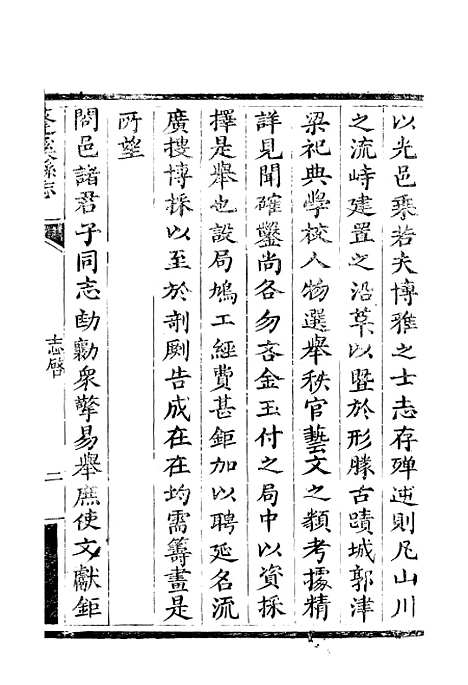 以光邑乘若夫博雅之士志存殫述則凡山川
之流峙建置之沿革以暨於形勝古蹟城郭津
梁祀典學校人物選舉秩官藝文之類考據精
詳見聞確鑿尚各勿吝金玉付之局中以資採
擇是舉也設局鳩工經費甚鉅加以聘延名流
廣搜博採以至於剞劂告成在在均需籌畫是
所望
闔邑諸君子同志劻勷眾擎易舉庶使文獻鉅
縣志
志啓
二